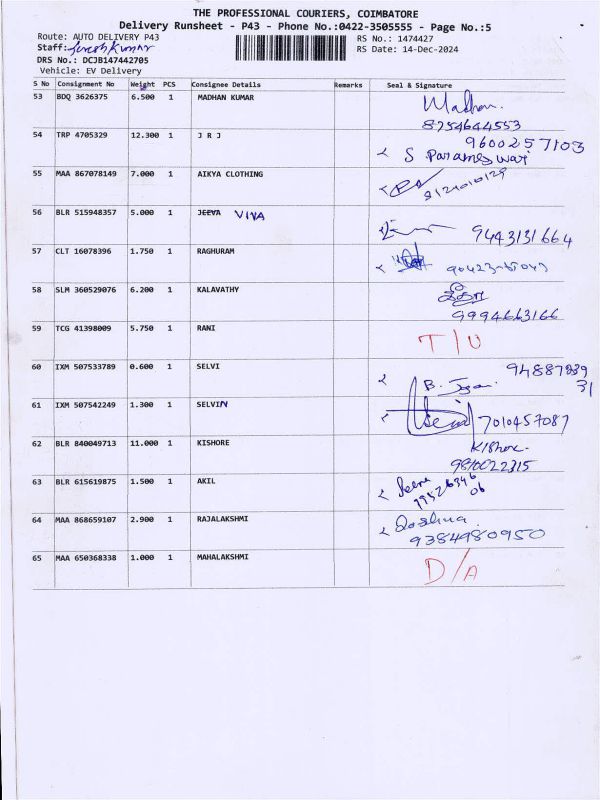 THE PROFESSIONAL COURIERS, COIMBATORE
Delivery Runsheet - P43 - Phone No.:0422-3505555 - Page No.:5
Route: AUTO DELIVERY P43 RS No.: 1474427
Staff: RS Date: 14-Dec-2024
DRS No.: DCJB147442705
Vehicle: EV Delivery
S No Consignment No Weight PCS Consignee Details Remarks Seal & Signature
53 BDQ 3626375 6.500 1 MADHAN KUMAR Madhan.
8754644553
54 TRP 4705329 12.300 1 J R J 9600257103
S Parameswari
55 MAA 867078149 7.000 1 AIKYA CLOTHING
56 BLR 515948357 5.000 1 JEEVA VIVA
9443131664
57 CLT 16078396 1.750 1 RAGHURAM
58 SLM 360529076 6.200 1 KALAVATHY
9994663166
59 TCG 41398009 5.750 1 RANI T/U
60 IXM 507533789 0.600 1 SELVI
B.
61 IXM 507542249 1.300 1 SELVIN 7010457087
62 BLR 840049713 11.000 1 KISHORE Kishore.
63 BLR 615619875 1.500 1 AKIL
64 MAA 868659107 2.900 1 RAJALAKSHMI
9384980950
65 MAA 650368338 1.000 1 MAHALAKSHMI D/A